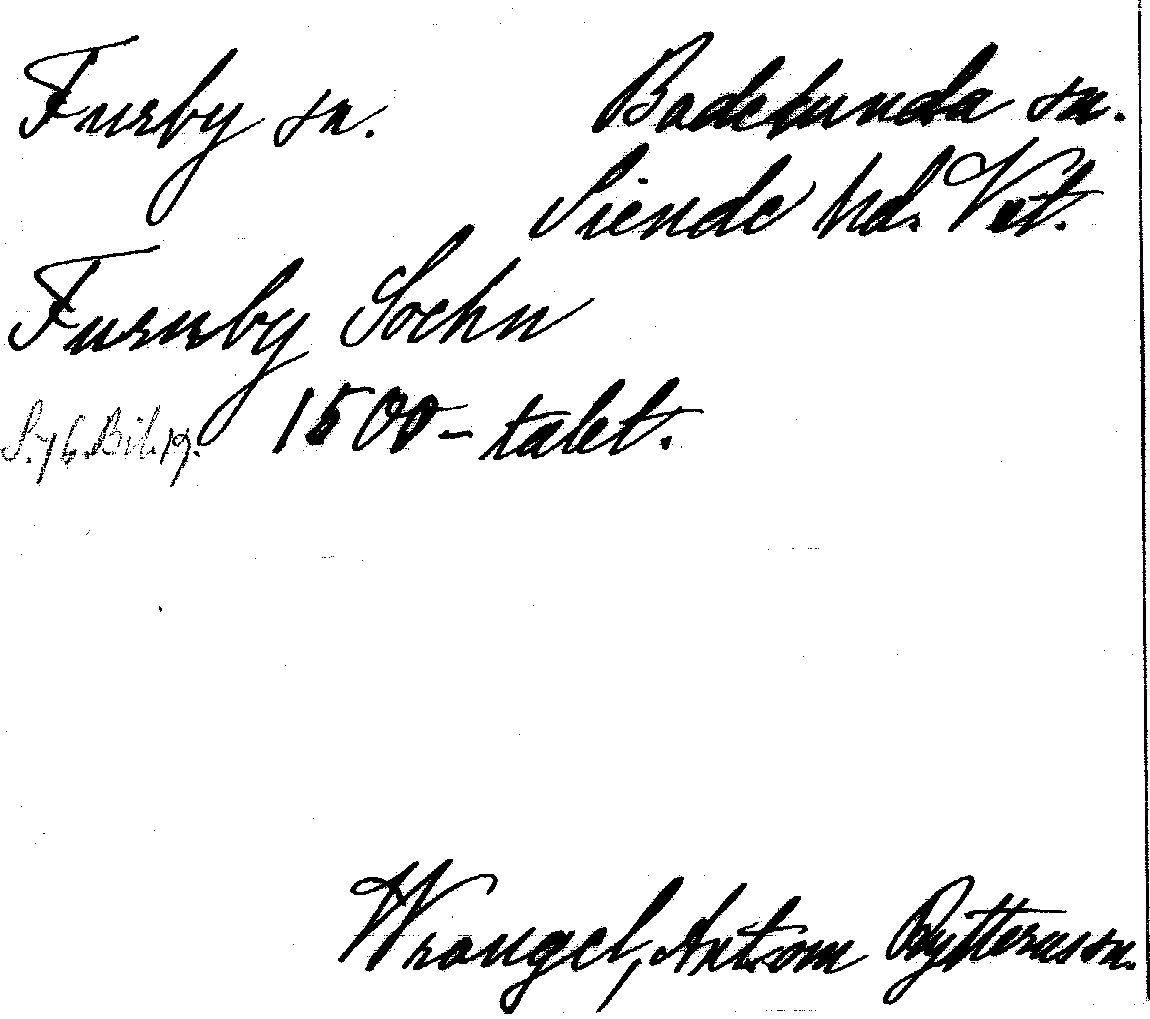 Furby sn. Badelunda sn.
Siende hd. Vst.
Furnby Sochn
S. 76. Bil. 19. 1500-talet.
Wrangel, Ant. om Rytterns sn.